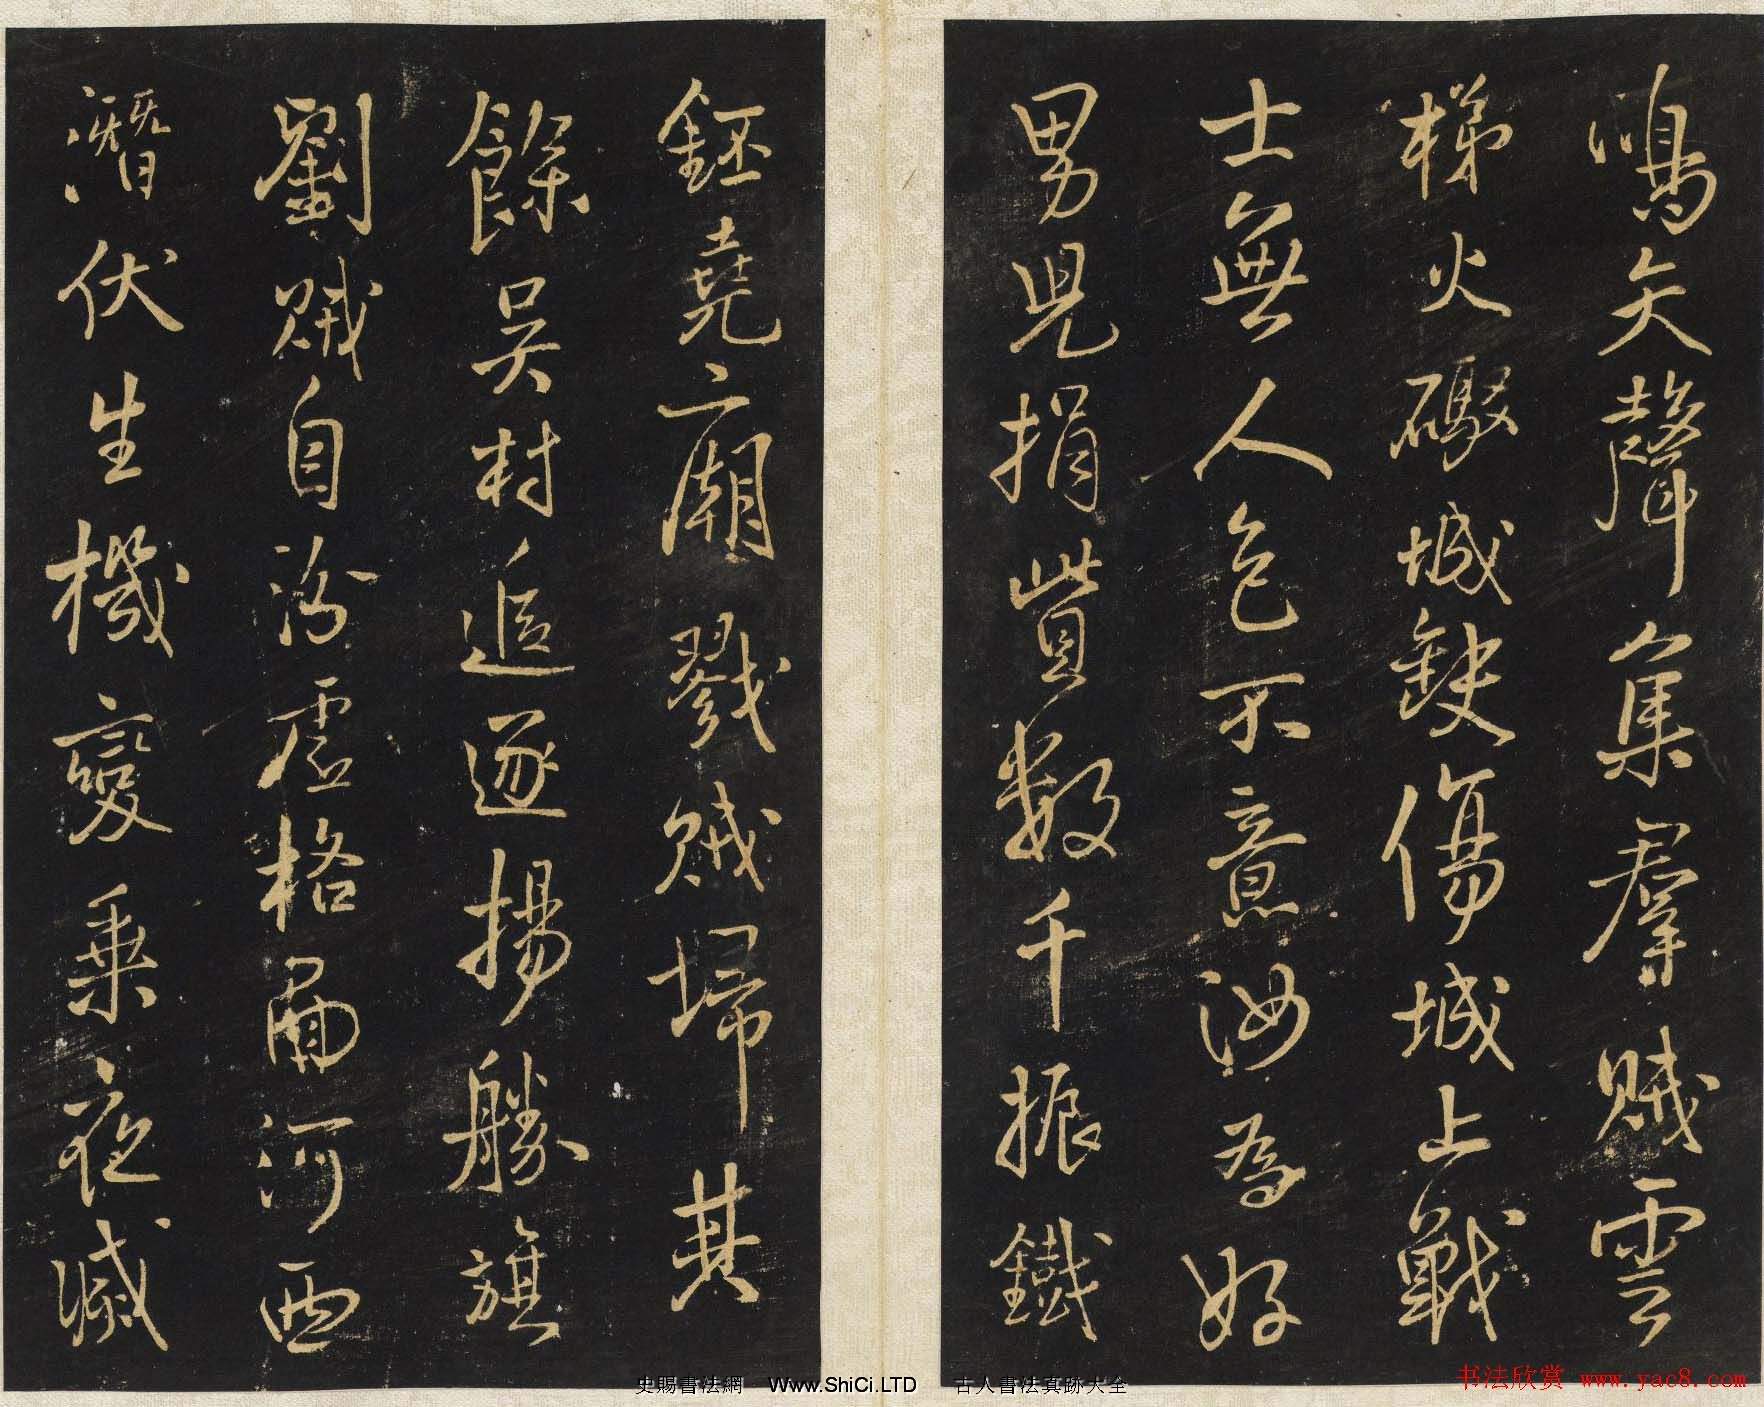 鳴矢聲集群賊雲
梯火礮城缺傷城上戰
士無人色不意汝為好
男兒捐貲數千振鐵
鉟堯之廟戮賊掃其
餘吳村追逐揚勝旗
劉賊自汾雲格面河西
潛伏生機變乘夜滅
史賜書法網 Www.ShiCi.LTD 古人書法真跡大全
书法欣赏 www.yac8.com